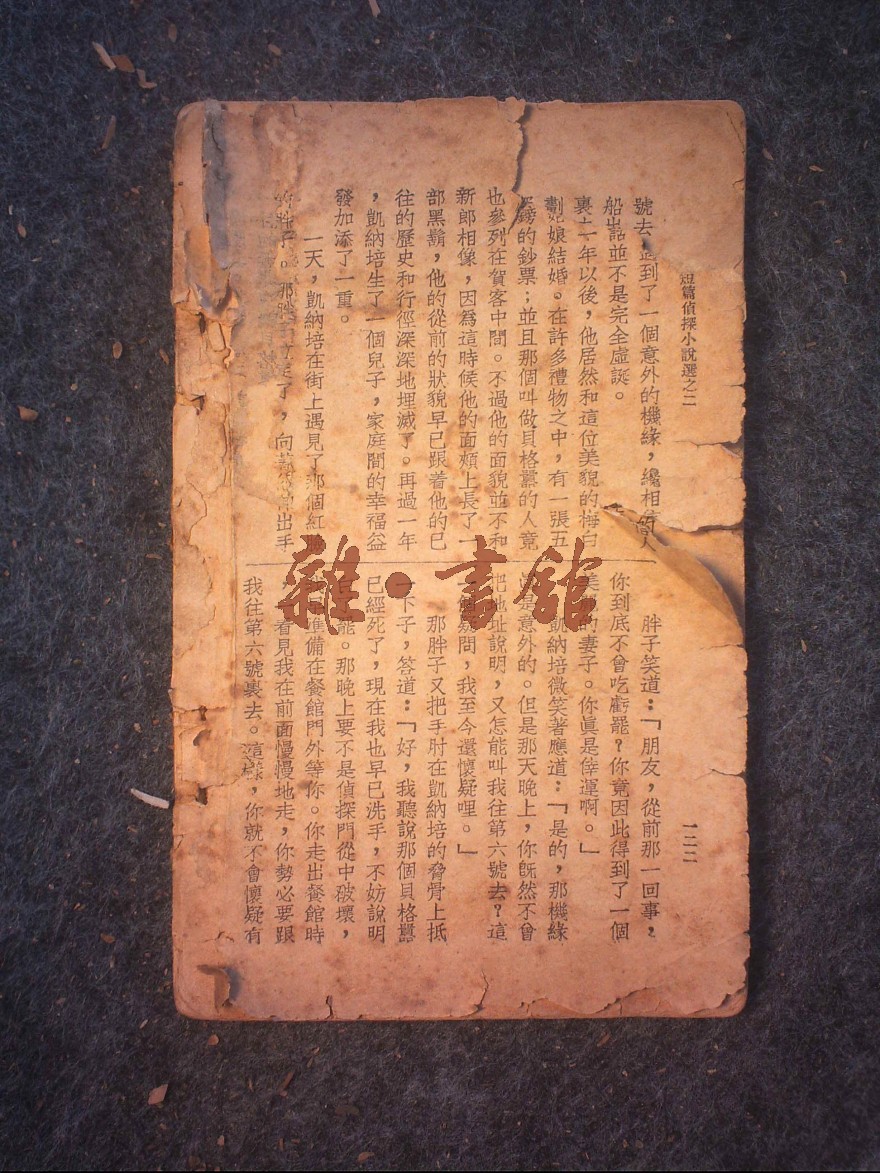 短篇偵探小說選之二
一二二
號去，到了一個意外的機緣，纔相信人
船上話並不是完全虛誕。
裏十一年以後，他居然和這位美貌的梅白
劃兒娘結婚。在許多禮物之中，有一張五
鎊的鈔票；並且那個叫做貝格羃的人竟
也參列在賀客中間。不過他的面貌並不和
新郎相像，因爲這時候他的面頰上長了一
部黑鬍，他的從前的狀貌早已跟着他的已
往的歷史和行徑深深地埋滅了。再過一年
，凱納培生了一個兒子，家庭間的幸福益
發加添了一重。
一天，凱納培在街上遇見了那個紅
的胖子。那胖子立定了，向出手
胖子笑道：「朋友，從前那一回事，
你到底不曾吃虧罷？你竟因此得到了一個
美的妻子。你眞是倖運啊。」
凱納培微笑著應道：「是的，那機緣
是意外的。但是那天晚上，你旣然不曾
把地址說明，又怎能叫我往第六號去？這
個疑問，我至今還懷疑哩。」
那胖子又把手肘在凱納培的脅骨上抵
一下子，答道：「好，我聽說那個貝格羃
已經死了，現在我也早已洗手，不妨說明
罷。那晚上要不是偵探門從中破壞，
準備在餐館門外等你。你走出餐館時
看見我在前面慢慢地走，你勢必要跟
我往第六號裏去。這樣，你就不會懷疑有
雜·書館